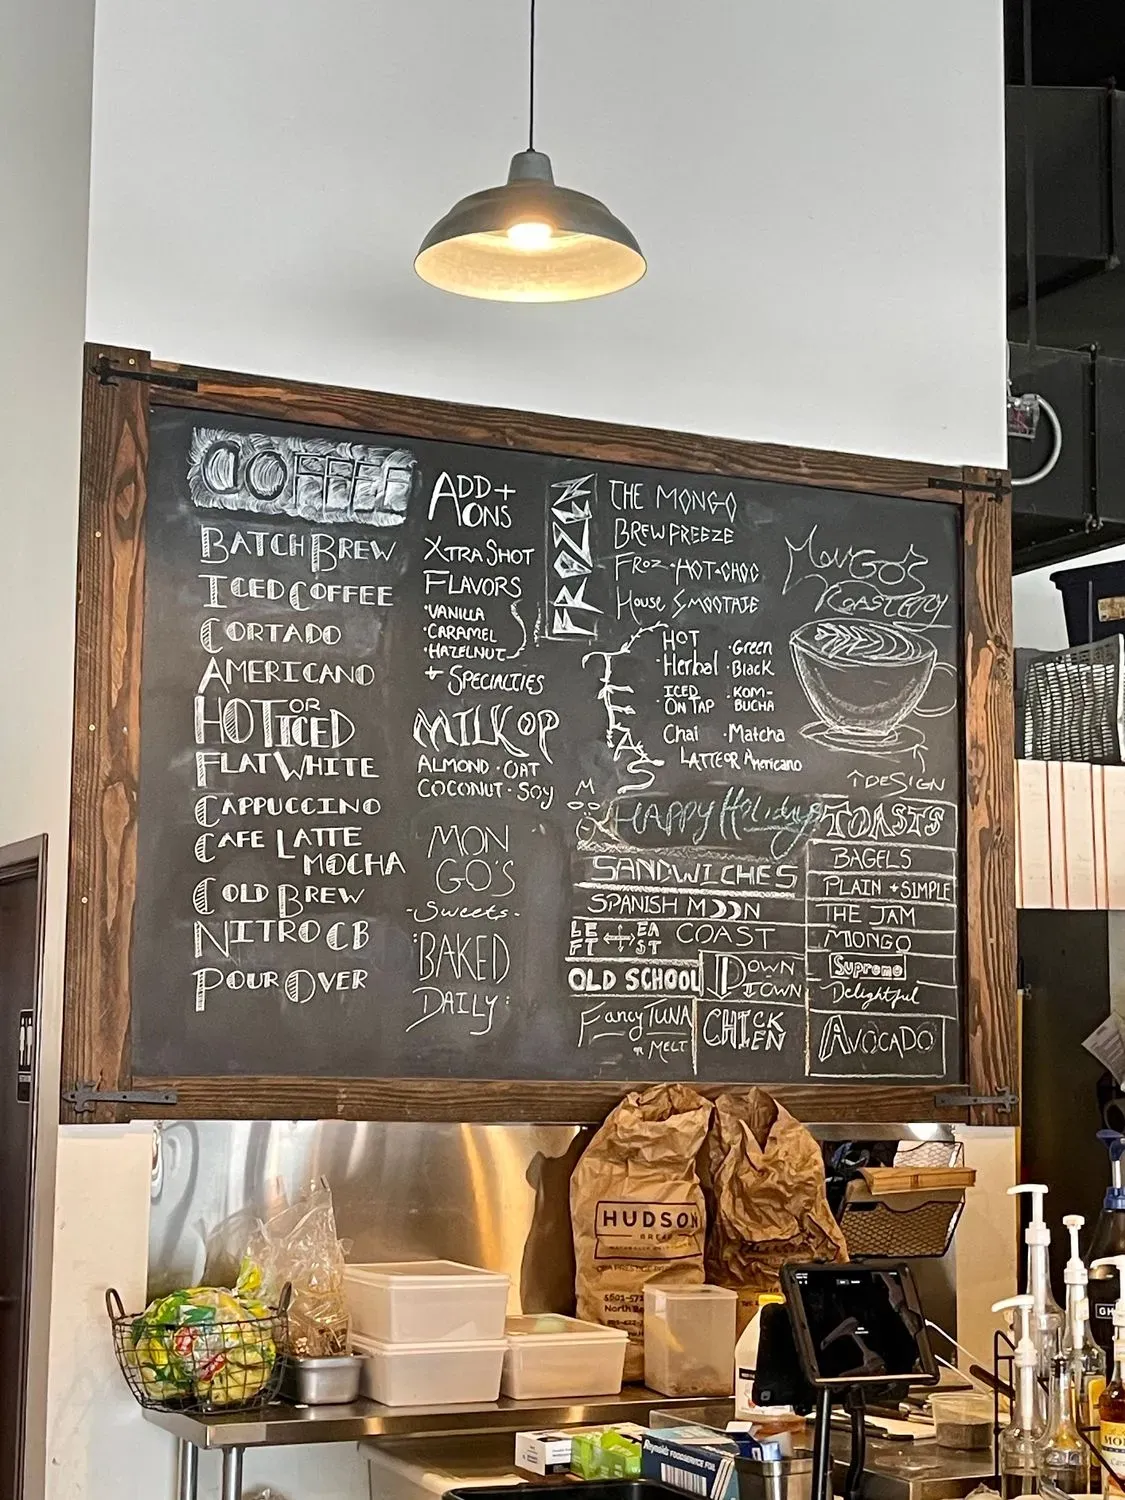 COFFEE
BATCH BREW
ICED COFFEE
CORTADO
AMERICANO
HOT OR ICED
FLAT WHITE
CAPPUCCINO
CAFE LATTE
MOCHA
COLD BREW
NITRO CB
POUR OVER
ADD +
ONS
XTRA SHOT
FLAVORS
•VANILLA
•CARAMEL
•HAZELNUT
+ SPECIALTIES
MILK OP
ALMOND • OAT
COCONUT • SOY
MON
GO'S
-Sweets-
BAKED
DAILY:
FROZEN
THE MONGO
BREW FREEZE
FROZ-HOT-CHOC
HOUSE SMOOTHIE
HOT
•Herbal
•Green
•Black
ICED
ON TAP
•KOM-
BUCHA
Chai •Matcha
LATTE OR Americano
MONGO'S
ROASTERY
↑DESIGN
HAPPY Holidays
SANDWICHES
SPANISH MOON
LEFT EAST COAST
OLD SCHOOL
DOWN
TOWN
Fancy TUNA
OR MELT
CHICKEN
TOASTS
BAGELS
PLAIN + SIMPLE
THE JAM
MONGO
Supreme
Delightful
AVOCADO
HUDSON
BREAD
North Be